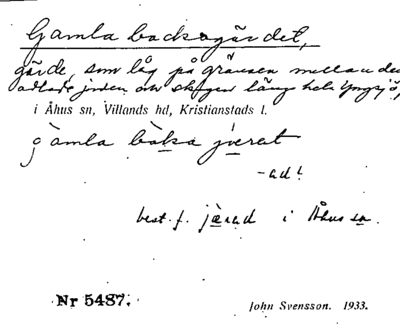 Gamla backagärdet,
gärde, som låg på gränsen mellan den
odlade jorden och skogen längs hela Yngsjö,
i Åhus sn, Villands hd, Kristianstads l.
gàmla bàka jværat
-ad!
best. f. jærad i Åhus sn.
Nr 5487.
John Svensson. 1933.